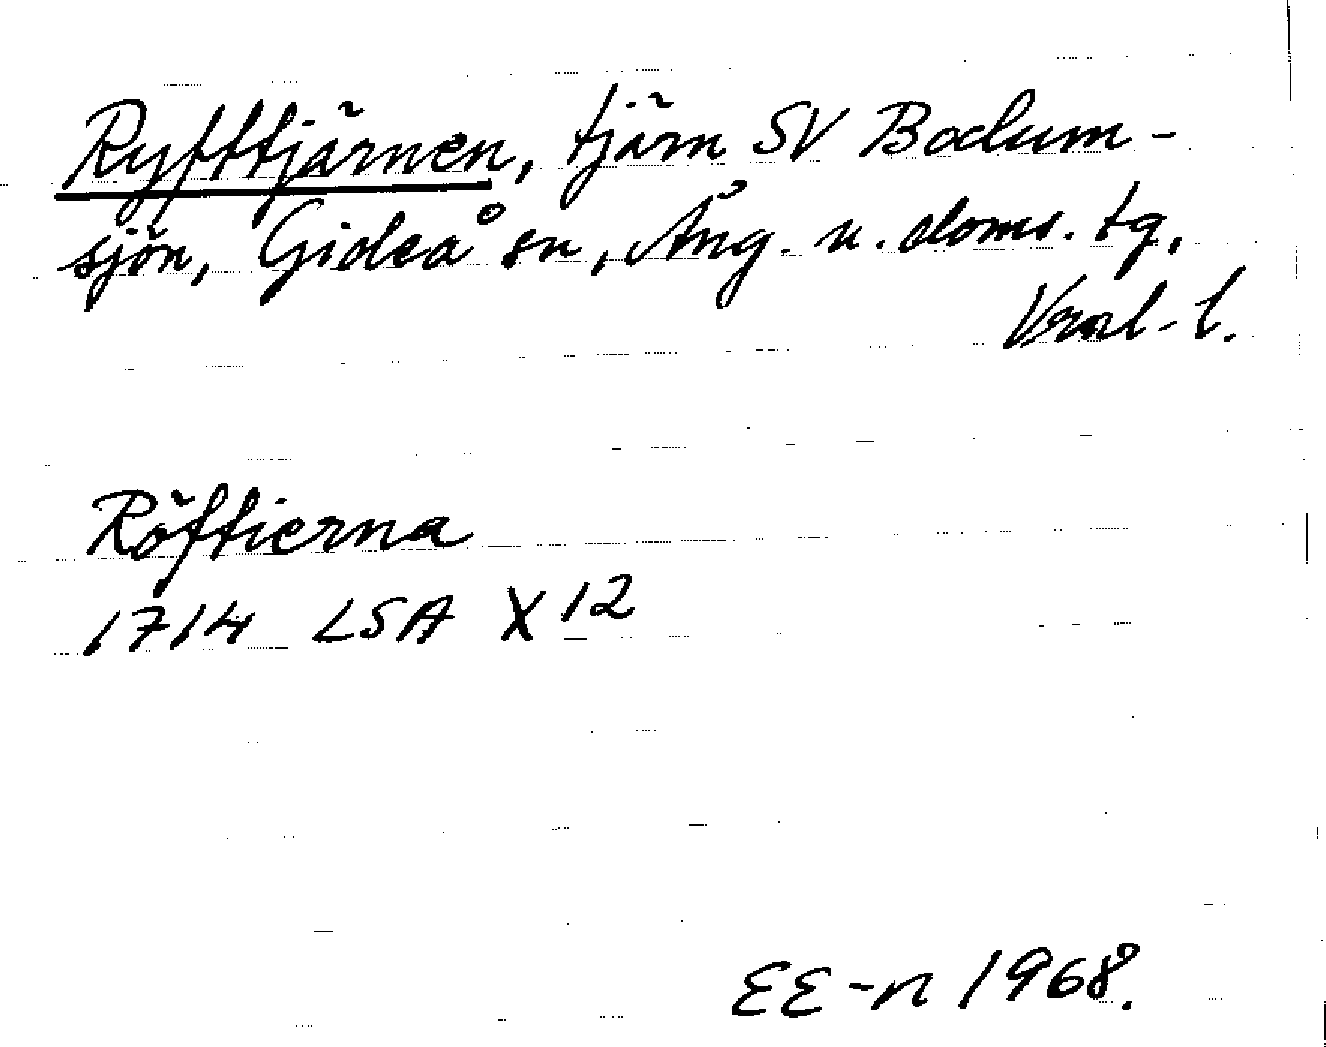 Ryfttjärnen, tjärn SV Bodum-
sjön, Gideå sn, Ång. n. doms. tg,
Vnrl-l.
Röftierna
1714 LSA X 12
EE-n 1968.